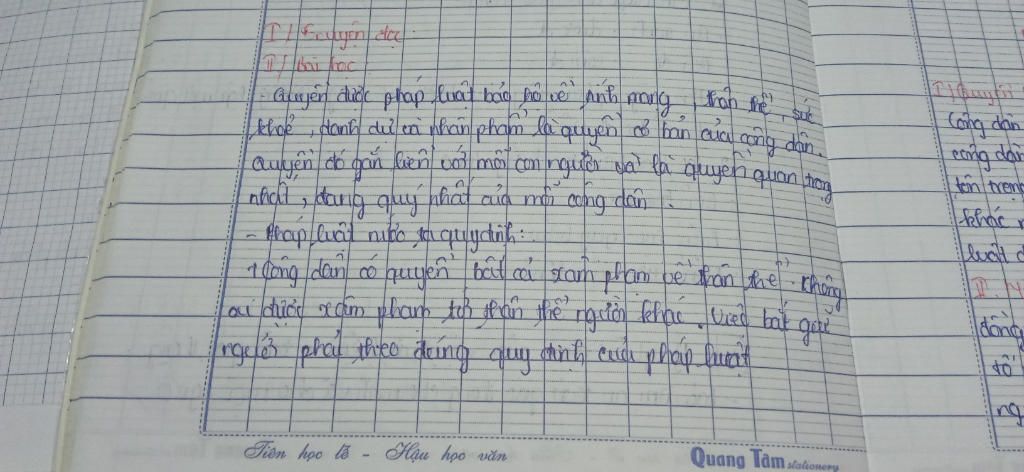 I / Truyện đọc
II / Bài học
Quyền được pháp luật bảo hộ về tính mạng, thân thể, sức
khoẻ, danh dự và nhân phẩm là quyền cơ bản của công dân.
Quyền đó gắn liền với mỗi con người và là quyền quan trọng
nhất, đáng quý nhất của mỗi công dân.
- Pháp luật nước ta quy định:
+ Công dân có quyền bất cả xâm phạm về thân thể. Không
ai được xâm phạm tới thân thể người khác. Việc bắt giữ
người phải theo đúng quy định của pháp luật
Tiên học lễ - Hậu học văn
Quang Tâm stationery
I / Quyền
Công dân
công dân
tôn trọng
khác
luật
II.
đồng
tố
ng